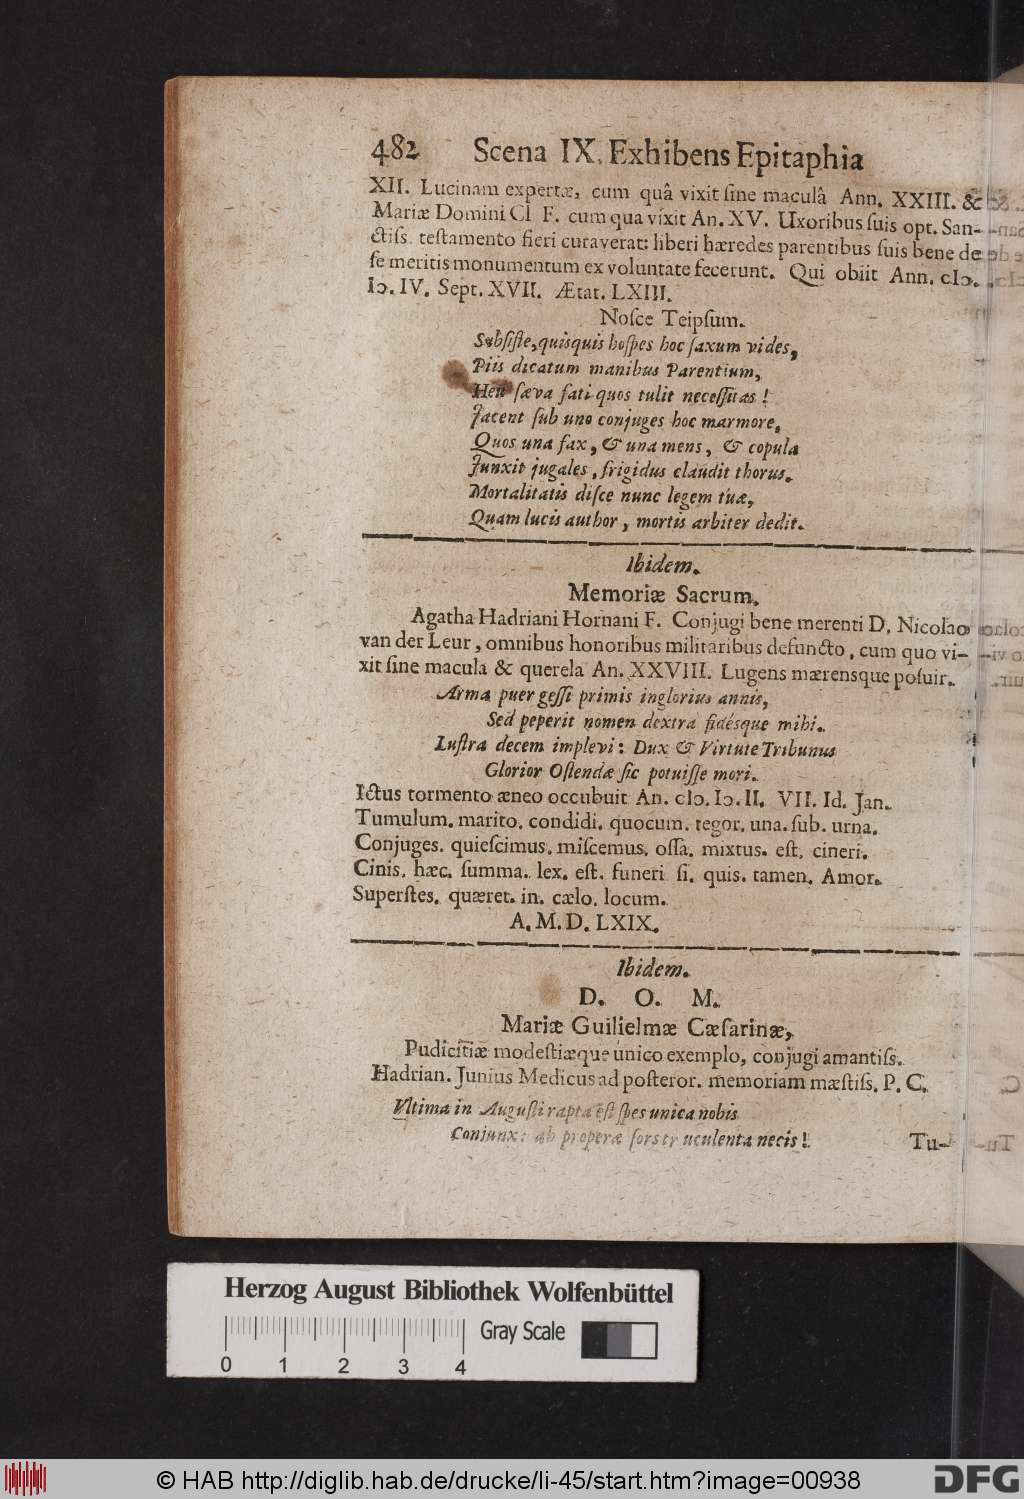 482 Scena IX. Exhibens Epitaphia
XII. Lucinam expertæ, cum quâ vixit ſine maculâ Ann. XXIII. &
Mariæ Domini Cl F. cum qua vixit An. XV. Uxoribus ſuis opt. San-
ctiſs. teſtamento fieri curaverat: liberi hæredes parentibus ſuis bene de
ſe meritis monumentum ex voluntate fecerunt. Qui obiit Ann. cIↄ.
Iↄ. IV. Sept. XVII. Ætat. LXIII.
Noſce Teipſum.
Subſiſte, quisquis hoſpes hoc ſaxum vides,
Piis dicatum manibus Parentium,
Heu ſæva fati quos tulit neceſſitas!
Jacent ſub uno conjuges hoc marmore,
Quos una fax, & una mens, & copula
Junxit jugales, frigidus claudit thorus.
Mortalitatis diſce nunc legem tuæ,
Quam lucis author, mortis arbiter dedit.
Ibidem.
Memoriæ Sacrum.
Agatha Hadriani Hornani F. Conjugi bene merenti D. Nicolao
van der Leur, omnibus honoribus militaribus defuncto, cum quo vi-
xit ſine macula & querela An. XXVIII. Lugens mærensque poſuir.
Arma puer geſſi primis inglorius annis,
Sed peperit nomen dextra fidésque mihi.
Luſtra decem implevi: Dux & Virtute Tribunus
Glorior Oſtendæ ſic potuiſſe mori.
Ictus tormento æneo occubuit An. cIↄ. Iↄ. II. VII. Id. Jan.
Tumulum. marito. condidi. quocum. tegor. una. ſub. urna.
Conjuges. quieſcimus. miſcemus. oſſa. mixtus. eſt. cineri.
Cinis. hæc. ſumma. lex. eſt. funeri ſi. quis. tamen. Amor.
Superſtes. quæret. in. cælo. locum.
A. M. D. LXIX.
Ibidem.
D. O. M.
Mariæ Guilielmæ Cæſarinæ,
Pudicitiæ modeſtiæque unico exemplo, conjugi amantiſs.
Hadrian. Junius Medicus ad poſteror. memoriam mæſtiſs. P. C.
Ultima in Auguſti rapta eſt ſpes unica nobis
Conjunx: ah properæ ſors tr uculenta necis!
Tu-
Herzog August Bibliothek Wolfenbüttel
Gray Scale
0 1 2 3 4
© HAB http://diglib.hab.de/drucke/li-45/start.htm?image=00938
DFG